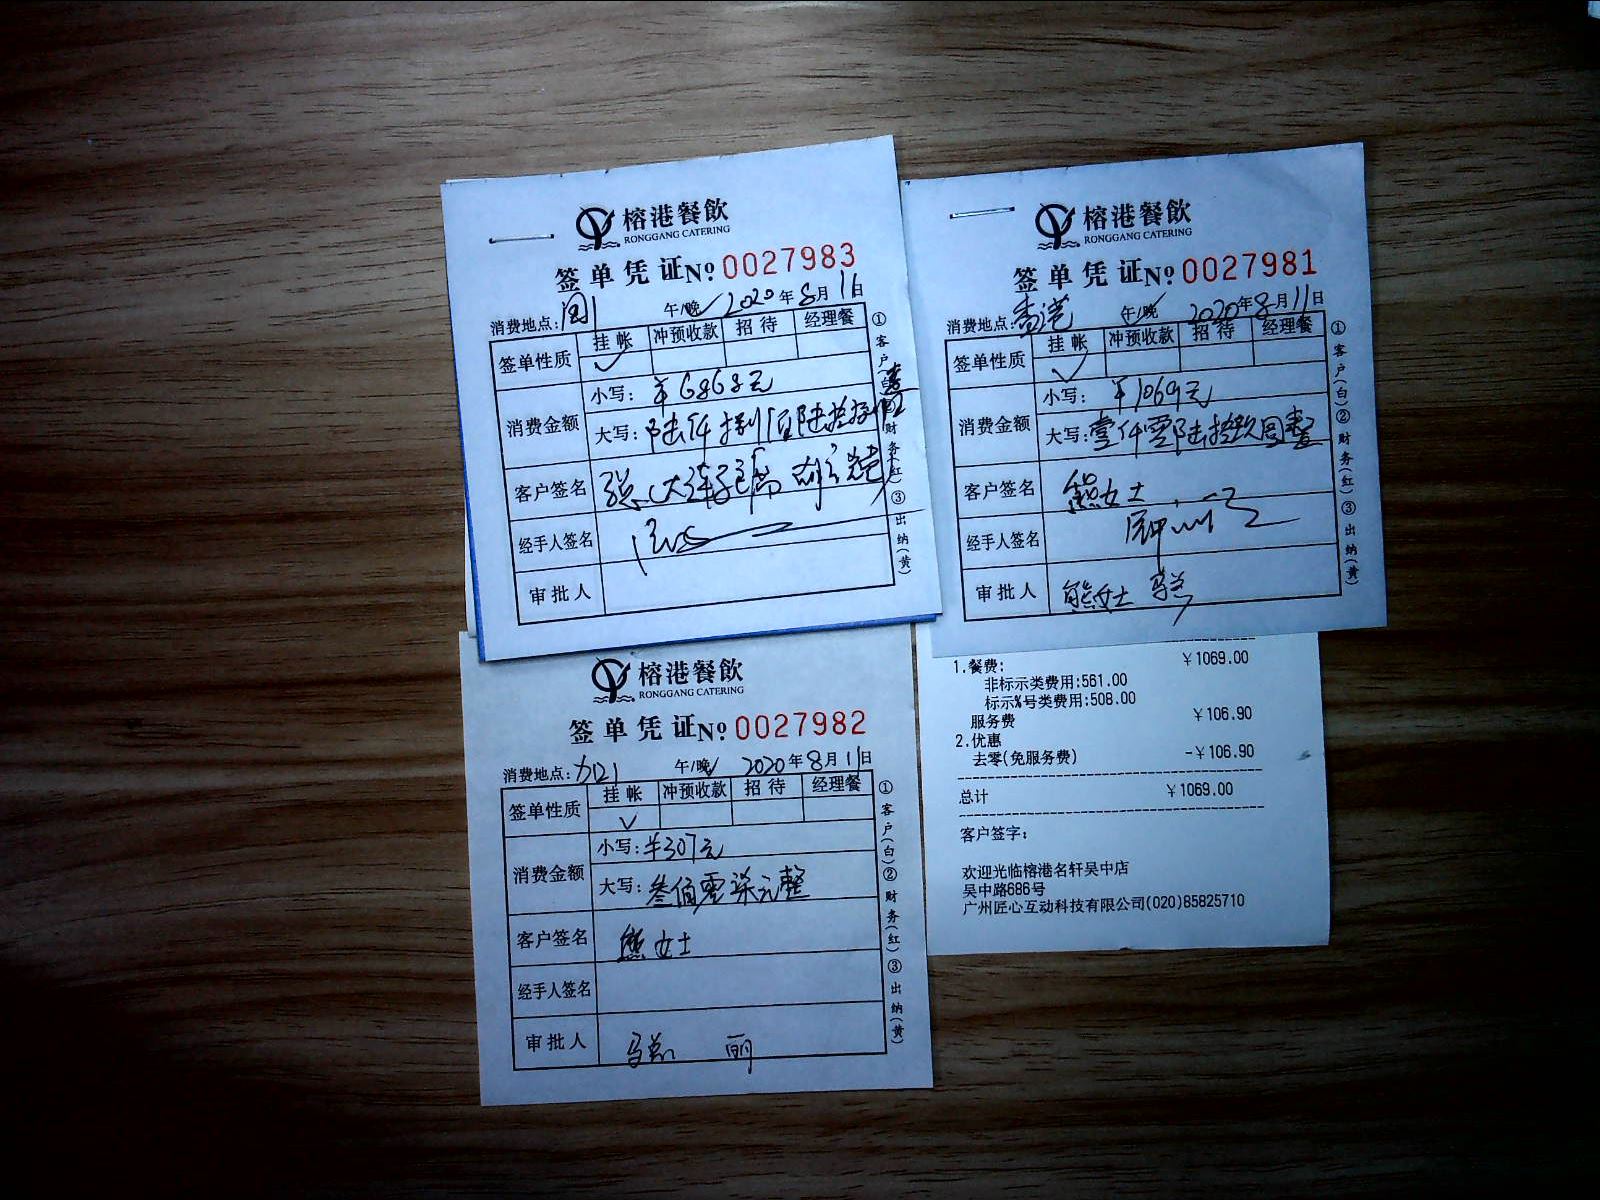 榕港餐飲
RONGGANG CATERING
签单凭证№ 0027983
消费地点: 午/晚 2020年8月11日
签单性质 挂帐 冲预收款 招待 经理餐
消费金额 小写: ¥6868元
大写: 陆仟捌佰陆拾捌
客户签名
经手人签名
审批人
①客户(白)②财务(红)③出纳(黄)
榕港餐飲
RONGGANG CATERING
签单凭证№ 0027981
消费地点: 香港 午/晚 2020年8月11日
签单性质 挂帐 冲预收款 招待 经理餐
消费金额 小写: ¥1069元
大写: 壹仟零陆拾玖圆整
客户签名 熊女士
经手人签名
审批人 熊女士
①客户(白)②财务(红)③出纳(黄)
榕港餐飲
RONGGANG CATERING
签单凭证№ 0027982
消费地点: 午/晚 2020年8月11日
签单性质 挂帐 冲预收款 招待 经理餐
消费金额 小写: ¥307元
大写: 叁佰零柒元整
客户签名 熊女士
经手人签名
审批人 马总 丽
①客户(白)②财务(红)③出纳(黄)
1.餐费: ¥1069.00
非标示类费用:561.00
标示%号类费用:508.00
服务费 ¥106.90
2.优惠
去零(免服务费) -¥106.90
总计 ¥1069.00
客户签字:
欢迎光临榕港名轩吴中店
吴中路686号
广州匠心互动科技有限公司(020)85825710